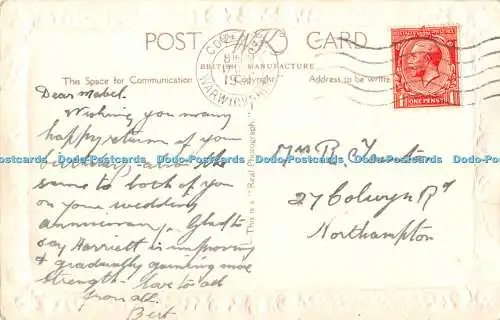 POST CARD
BRITISH MANUFACTURE
This Space for Communication
Copyright
Address to be written
WARWICKSHIRE
ONE PENNY
This is a "Real Photograph"
Dear Mabel.
Wishing you many
happy return of your
birthday, also the
same to both of you
on your wedding
anniversary. Glad to
say Harriett is improving
& gradually gaining more
strength - love to all
from all.
Bert
Mrs R.
27 Colwyn Rd
Northampton
Dodo-Postcards Dodo-Postcards Dodo-Postcards Dodo-Postcards Dodo-Postcards